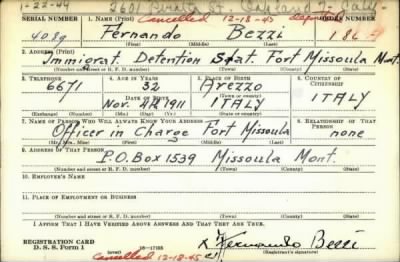 1-22-44 2601 St. Oakland 7, Calif.
Cancelled 12-18-45
SERIAL NUMBER 1. NAME (Print) ORDER NUMBER
4089 Fernando Bezzi
(First) (Middle) (Last)
2. ADDRESS (Print)
Immigrat. Detention Stat. Fort Missoula Mont.
(Number and street or R. F. D. number) (Town) (County) (State)
3. TELEPHONE 4. AGE IN YEARS 5. PLACE OF BIRTH 6. COUNTRY OF CITIZENSHIP
6671 32 Arezzo
DATE OF BIRTH (Town or county)
Nov. 24, 1911 ITALY ITALY
(Mo.) (Day) (Yr.) (State or country)
7. NAME OF PERSON WHO WILL ALWAYS KNOW YOUR ADDRESS 8. RELATIONSHIP OF THAT PERSON
Officer in Charge Fort Missoula none
(Mr., Mrs., Miss) (First) (Middle) (Last)
9. ADDRESS OF THAT PERSON
P.O. Box 1539 Missoula Mont.
(Number and street or R. F. D. number) (Town) (County) (State)
10. EMPLOYER'S NAME
11. PLACE OF EMPLOYMENT OR BUSINESS
(Number and street or R. F. D. number) (Town) (County) (State)
I AFFIRM THAT I HAVE VERIFIED ABOVE ANSWERS AND THAT THEY ARE TRUE.
REGISTRATION CARD
D. S. S. Form 1 16—17105 x Fernando Bezzi
Cancelled 12-18-45 (Registrant's signature)